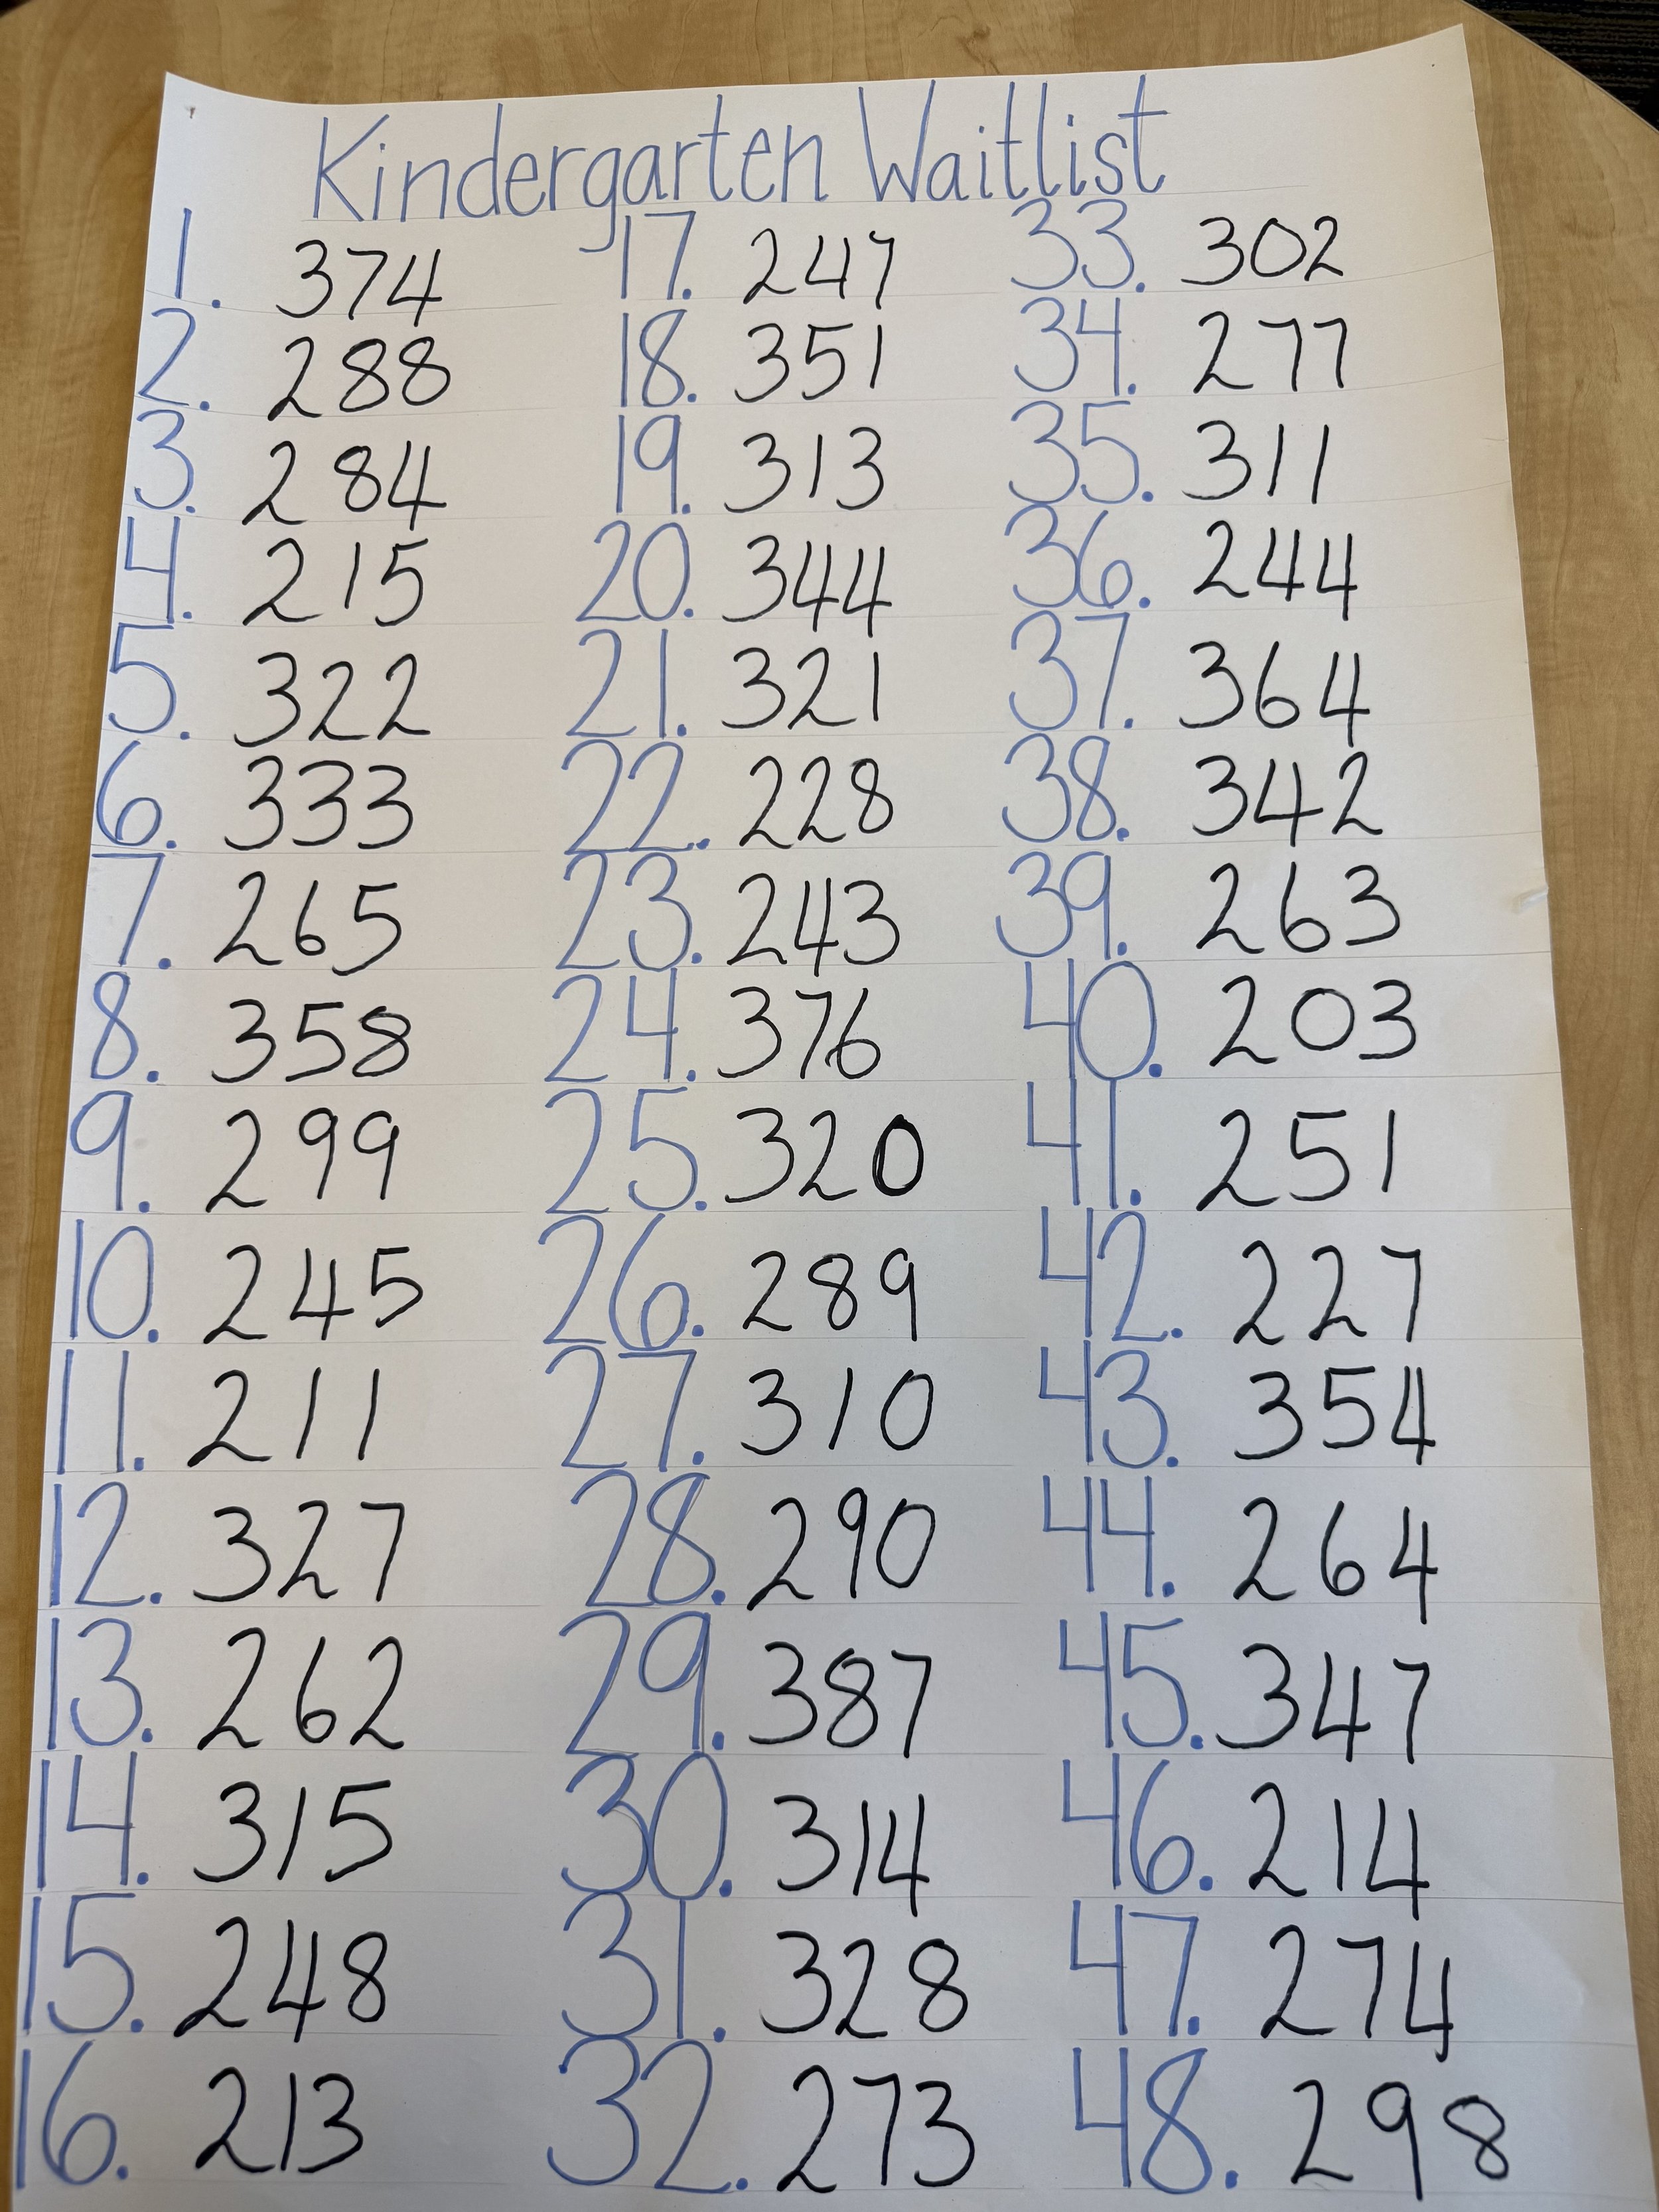 Kindergarten Waitlist
1. 374
2. 288
3. 284
4. 215
5. 322
6. 333
7. 265
8. 358
9. 299
10. 245
11. 211
12. 327
13. 262
14. 315
15. 248
16. 213
17. 247
18. 351
19. 313
20. 344
21. 321
22. 228
23. 243
24. 376
25. 320
26. 289
27. 310
28. 290
29. 387
30. 314
31. 328
32. 273
33. 302
34. 277
35. 311
36. 244
37. 364
38. 342
39. 263
40. 203
41. 251
42. 227
43. 354
44. 264
45. 347
46. 214
47. 274
48. 298